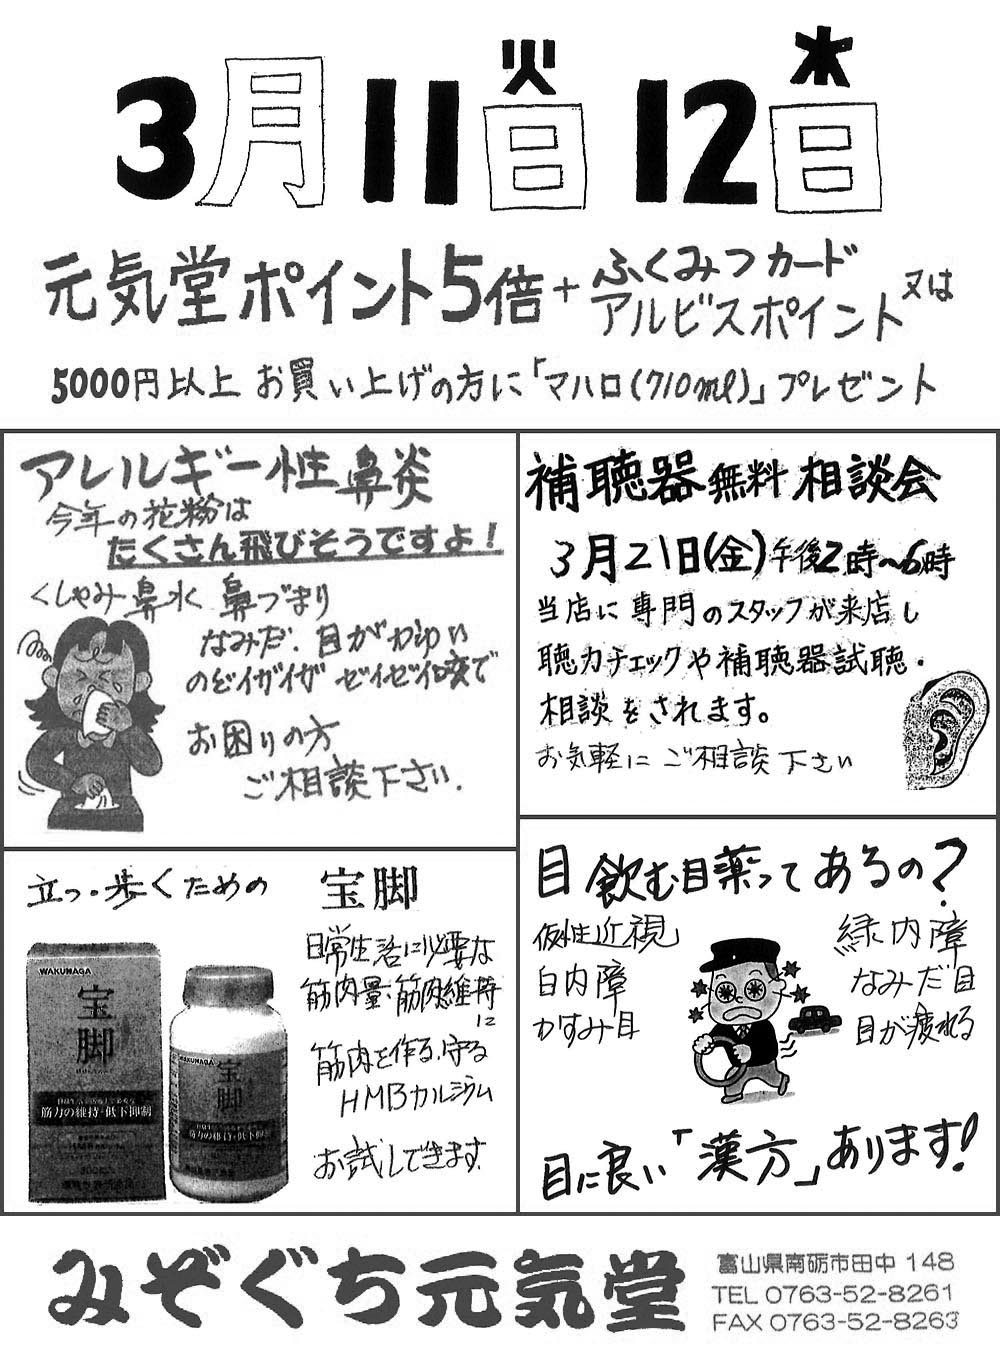 3月11火日 12水日
元気堂ポイント5倍+ふくみつカード
アルビスポイント又は
5000円以上お買い上げの方に「マハロ(710ml)」プレゼント
アレルギー性鼻炎
今年の花粉は
たくさん飛びそうですよ!
くしゃみ 鼻水 鼻づまり
なみだ.目がかゆい
のどイガイガ ゼイゼイ咳で
お困りの方
ご相談下さい.
補聴器無料相談会
3月21日(金)午後2時~6時
当店に専門のスタッフが来店し
聴力チェックや補聴器試聴・
相談をされます。
お気軽にご相談下さい
立つ・歩くための 宝脚
日常生活に必要な
筋肉量・筋肉維持
に
筋肉を作る.守る
HMBカルシウム
お試しできます.
WAKUNAGA
宝脚
筋力の維持・低下抑制
WAKUNAGA
宝脚
筋力の維持・低下抑制
目 飲む目薬ってあるの?
仮性近視
白内障
かすみ目
緑内障
なみだ目
目が疲れる
目に良い「漢方」あります!
みぞぐち元気堂
富山県南砺市田中 148
TEL 0763-52-8261
FAX 0763-52-8263